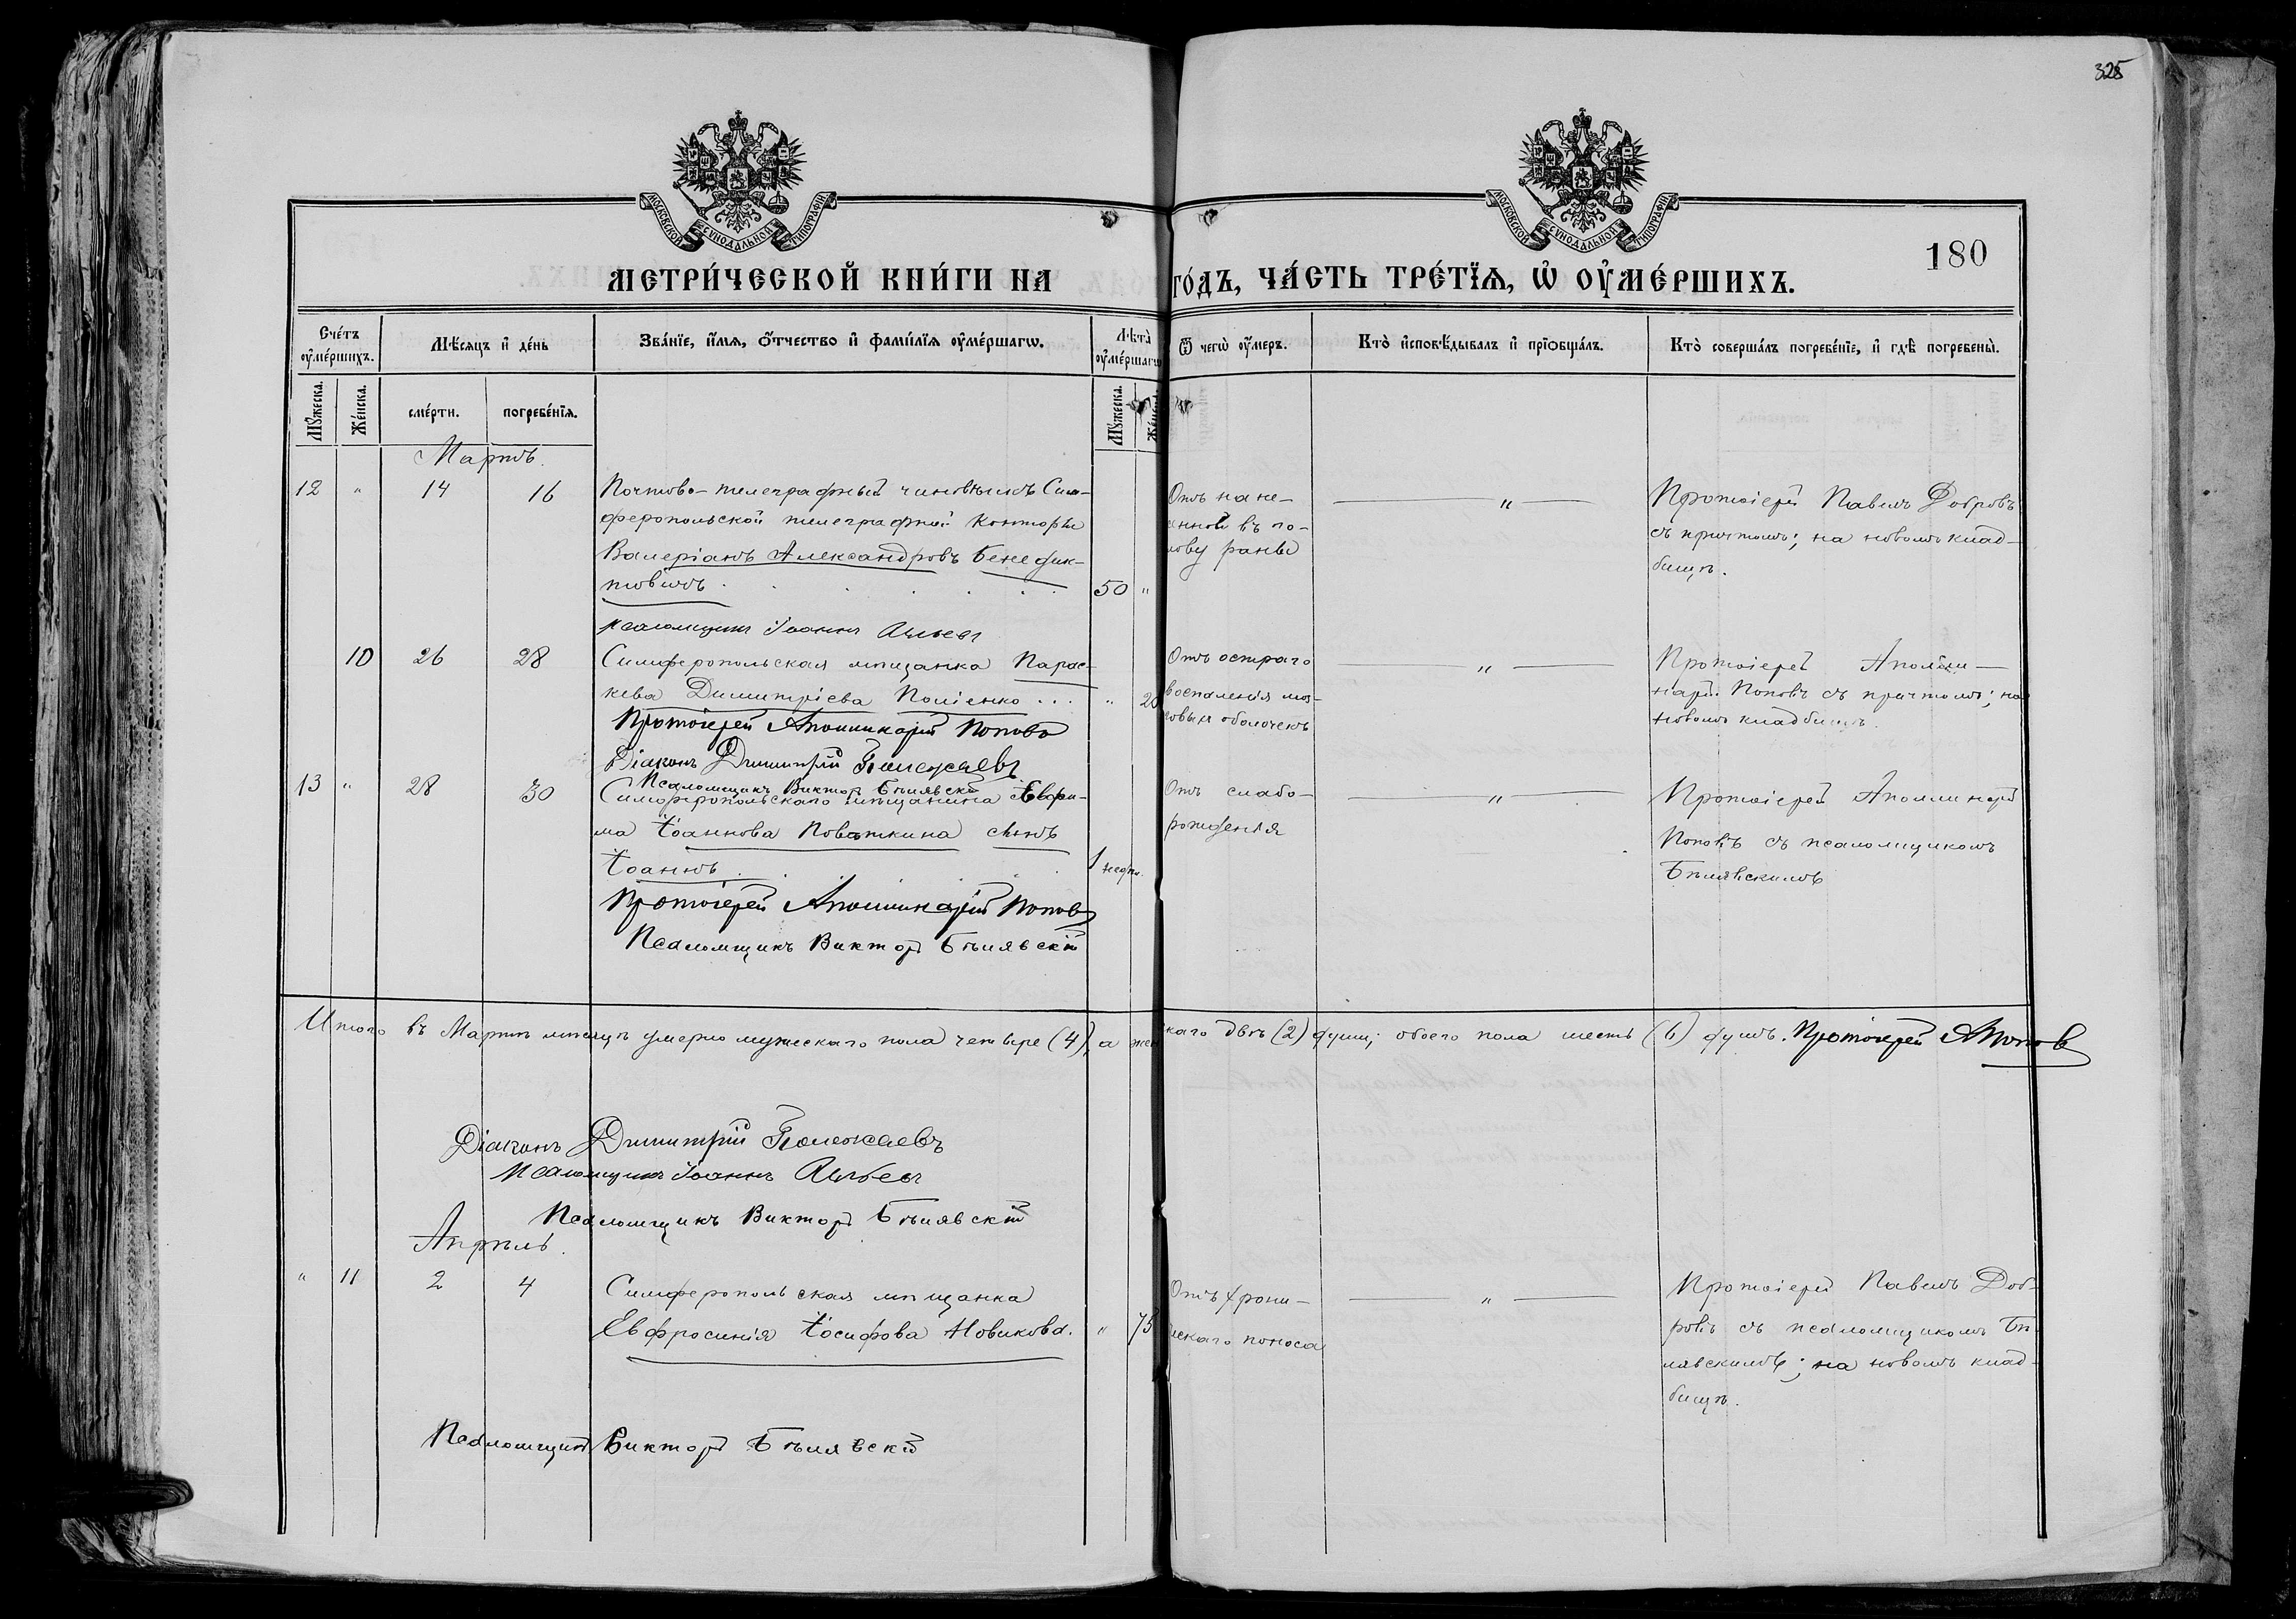 325
МОСКОВСКОЙ СѴНОДАЛЬНОЙ ТИПОГРАФІИ
МОСКОВСКОЙ СѴНОДАЛЬНОЙ ТИПОГРАФІИ
180
МЕТРИ́ЧЕСКОЙ КНИ́ГИ НА ГО́ДЪ, ЧА́СТЬ ТРЕ́ТЇѦ, Ѡ҆ ОУ҆МЕ́РШИХЪ.
Сче́тъ оу҆ме́ршихъ.
Мѣ́сяцъ и҆ де́нь
Зва́нїе, и҆́мѧ, ѻ҆́тчество и҆ фами́лїѧ оу҆ме́ршагѡ.
Лѣ́та̀ оу҆ме́ршагѡ
Ѿ чегѡ̀ оу҆́меръ.
Кто̀ и҆сповѣ́дывалъ и҆ прїѡбща́лъ.
Кто̀ соверша́лъ погребе́нїе, и҆ гдѣ̀ погребены̀.
Мꙋ́жеска.
Же́нска.
сме́рти.
погребе́нїѧ.
Мꙋ́жеска.
Мартъ.
12 " 14 16 Почтово-телеграфный чиновникъ Сим-
феропольской телеграфной Конторы
Валеріанъ Александровъ Бенедик-
товичъ . . . . . 50 "
Отъ нане-
енной въ го-
лову раны
"
Протоіерей Павелъ Добровъ
съ причтомъ; на новомъ клад-
бищѣ.
Псаломщикъ Іоаннъ
10 26 28 Симферопольская мѣщанка Парас-
кева Димитріева Полѣенко ... " 20
Отъ остраго
воспаленія моз-
говыхъ оболочекъ
"
Протоіерей Аполли-
нарій Поповъ съ причтомъ; на
новомъ кладбищѣ.
Протоіерей Аполлинарій Поповъ
Діаконъ Димитрій Полежаевъ
Псаломщикъ Викторъ Бѣлявскій
13 " 28 30 Симферопольскаго мѣщанина Ефи-
ма Іоаннова Поваткина сынъ
Іоаннъ . . . . 1 недѣл.
Отъ слабо-
рожденія
"
Протоіерей Аполлинарій
Поповъ съ псаломщикомъ
Бѣлявскимъ
Протоіерей Аполлинарій Поповъ
Псаломщикъ Викторъ Бѣлявскій
Итого въ Мартѣ мѣсяцѣ умерло мужескаго пола четыре (4), а женскаго двѣ (2) души; обоего пола шесть (6) душъ. Протоіерей А Поповъ
Діаконъ Димитрій Полежаевъ
Псаломщикъ Іоаннъ
Псаломщикъ Викторъ Бѣлявскій
Апрѣль.
" 11 2 4 Симферопольская мѣщанка
Евфросинія Іосифова Новикова. " 75
Отъ хрони-
ческаго поноса
"
Протоіерей Павелъ Доб-
ровъ съ псаломщикомъ Бѣ-
лявскимъ; на новомъ клад-
бищѣ.
Псаломщикъ Викторъ Бѣлявскій